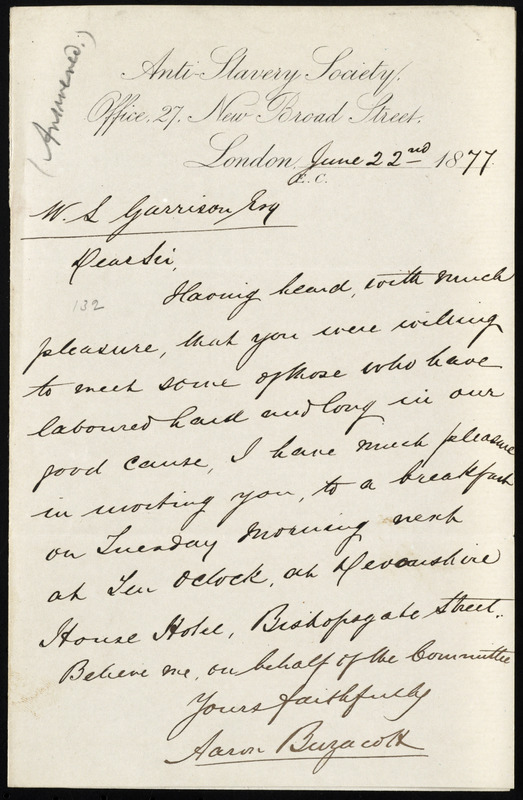 (Answered.)
Anti-Slavery Society,
Office, 27, New Broad Street,
London, June 22nd 1877
E.C.
W. L Garrison Esq
Dear Sir,
132
Having heard, with much
pleasure, that you were willing
to meet some of those who have
laboured hard and long in our
good cause, I have much pleasure
in inviting you, to a breakfast
on Tuesday morning next
at Ten Oclock, at Devonshire
House Hotel, Bishopsgate Street.
Believe me, on behalf of the Committee
Yours faithfully
Aaron Buzacott